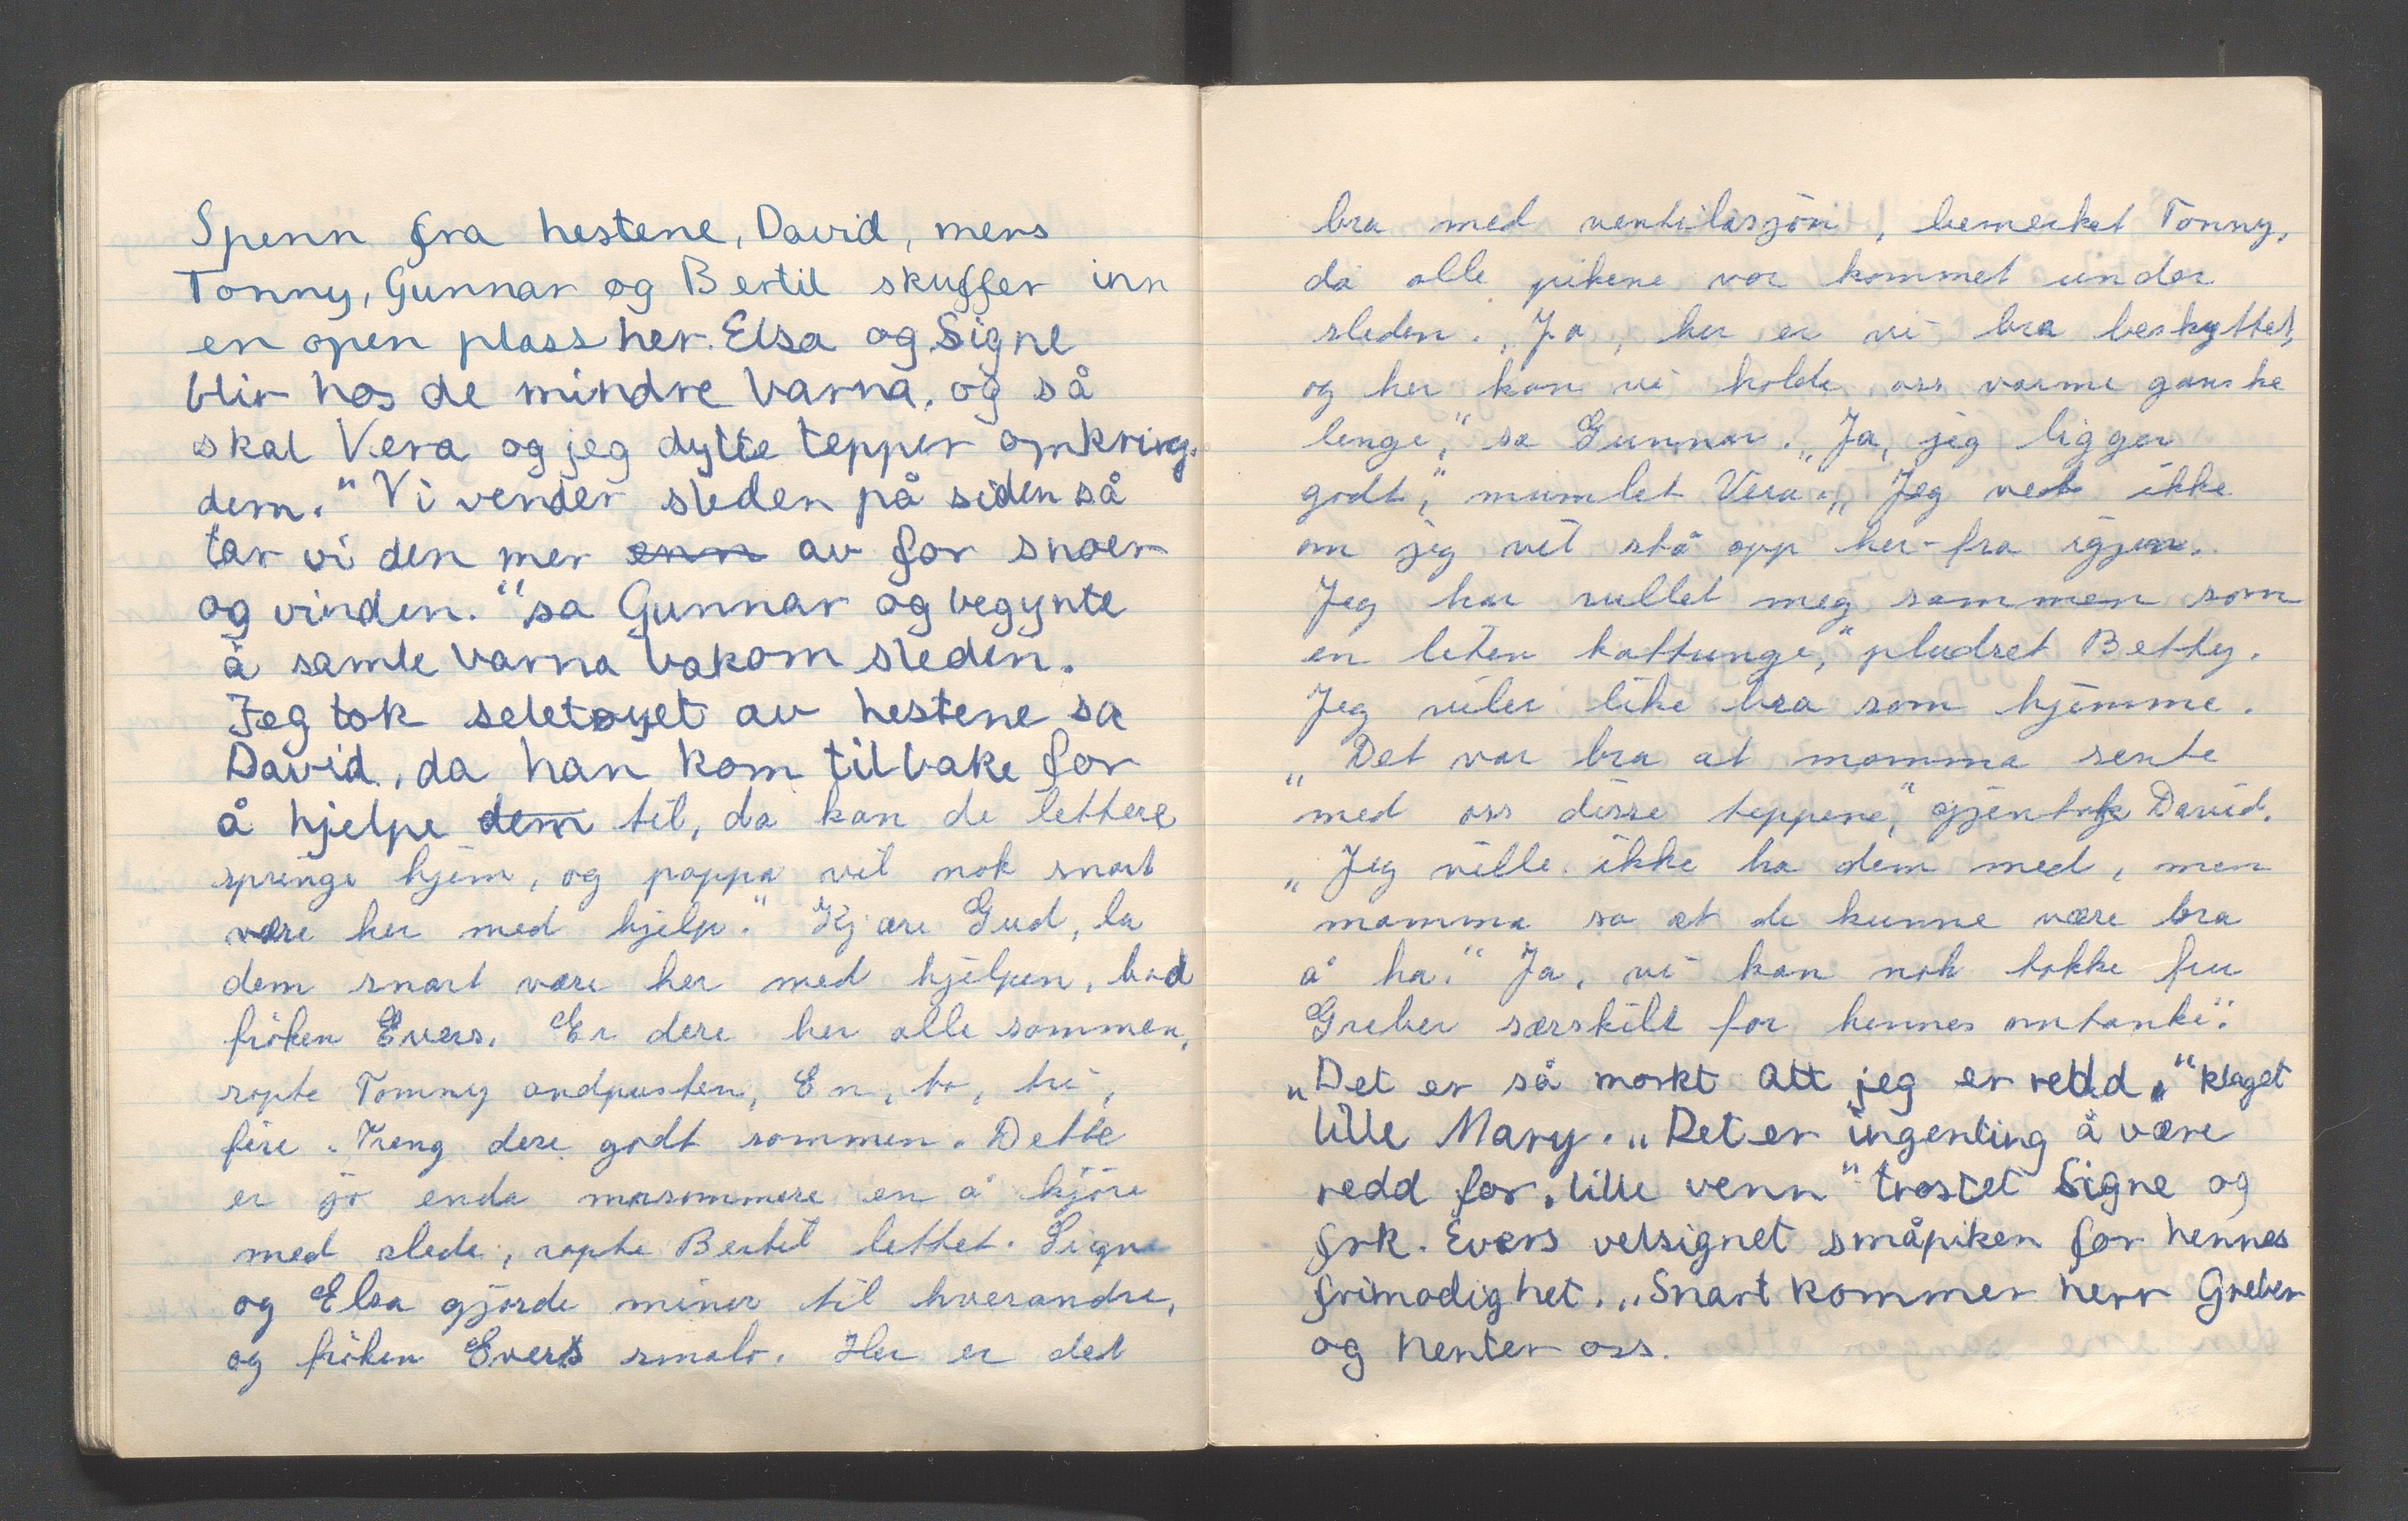 Spenn fra hestene, David, mens
Tonny, Gunnar og Bertil skuffer inn
en open plass her. Elsa og Signe
blir hos de mindre barna, og så
skal Vera og jeg dytte tepper omkring.
dem." Vi vender sleden på siden så
tar vi den mer enn av for snoen
og vinden." sa Gunnar og begynte
å samle barna bakom sleden.
Jeg tok seletoyet av hestene sa
David, da han kom tilbake for
å hjelpe dem til, da kan de lettere
springe hjem, og pappa vil nok snart
være her med hjelp." Kjære Gud, la
dem snart være her med hjelpen, bad
fröken Evers. Er dere her alle sammen,
ropte Tonny andpusten, En, to, tre,
fire. Treng dere godt sammen. Dette
er jo enda morsommere en å kjöre
med slede, ropte Bertil lettet. Signe
og Elsa gjorde miner til hverandre,
og fröken Evers smalo. Her er det
bra med ventilasjön, bemerket Tonny,
da alle pikene var kommet under
sleden. „Ja, her er vi bra beskyttet,
og her kan vi holde oss varme ganske
lenge," sa Gunnar. „Ja, jeg ligger
godt," mumlet Vera. „Jeg vet ikke
om jeg vil stå opp her-fra igjen.
Jeg har rullet meg sammen som
en liten kattunge," pludret Betty.
Jeg viler like bra som hjemme.
„Det var bra at mamma sente
"med oss disse teppene," gjentok David.
„Jeg ville ikke ha dem med, men
"mamma sa at de kunne være bra
å ha." Ja, vi kan nok takke fru
Greber særskilt for hennes omtanke".
„Det er så morkt att jeg er redd," klaget
lille Mary. „Det er ingenting å være
redd for, lille venn" trostet Signe og
frk. Evers velsignet småpiken for hennes
frimodighet. „Snart kommer herr Greber
og henter oss.